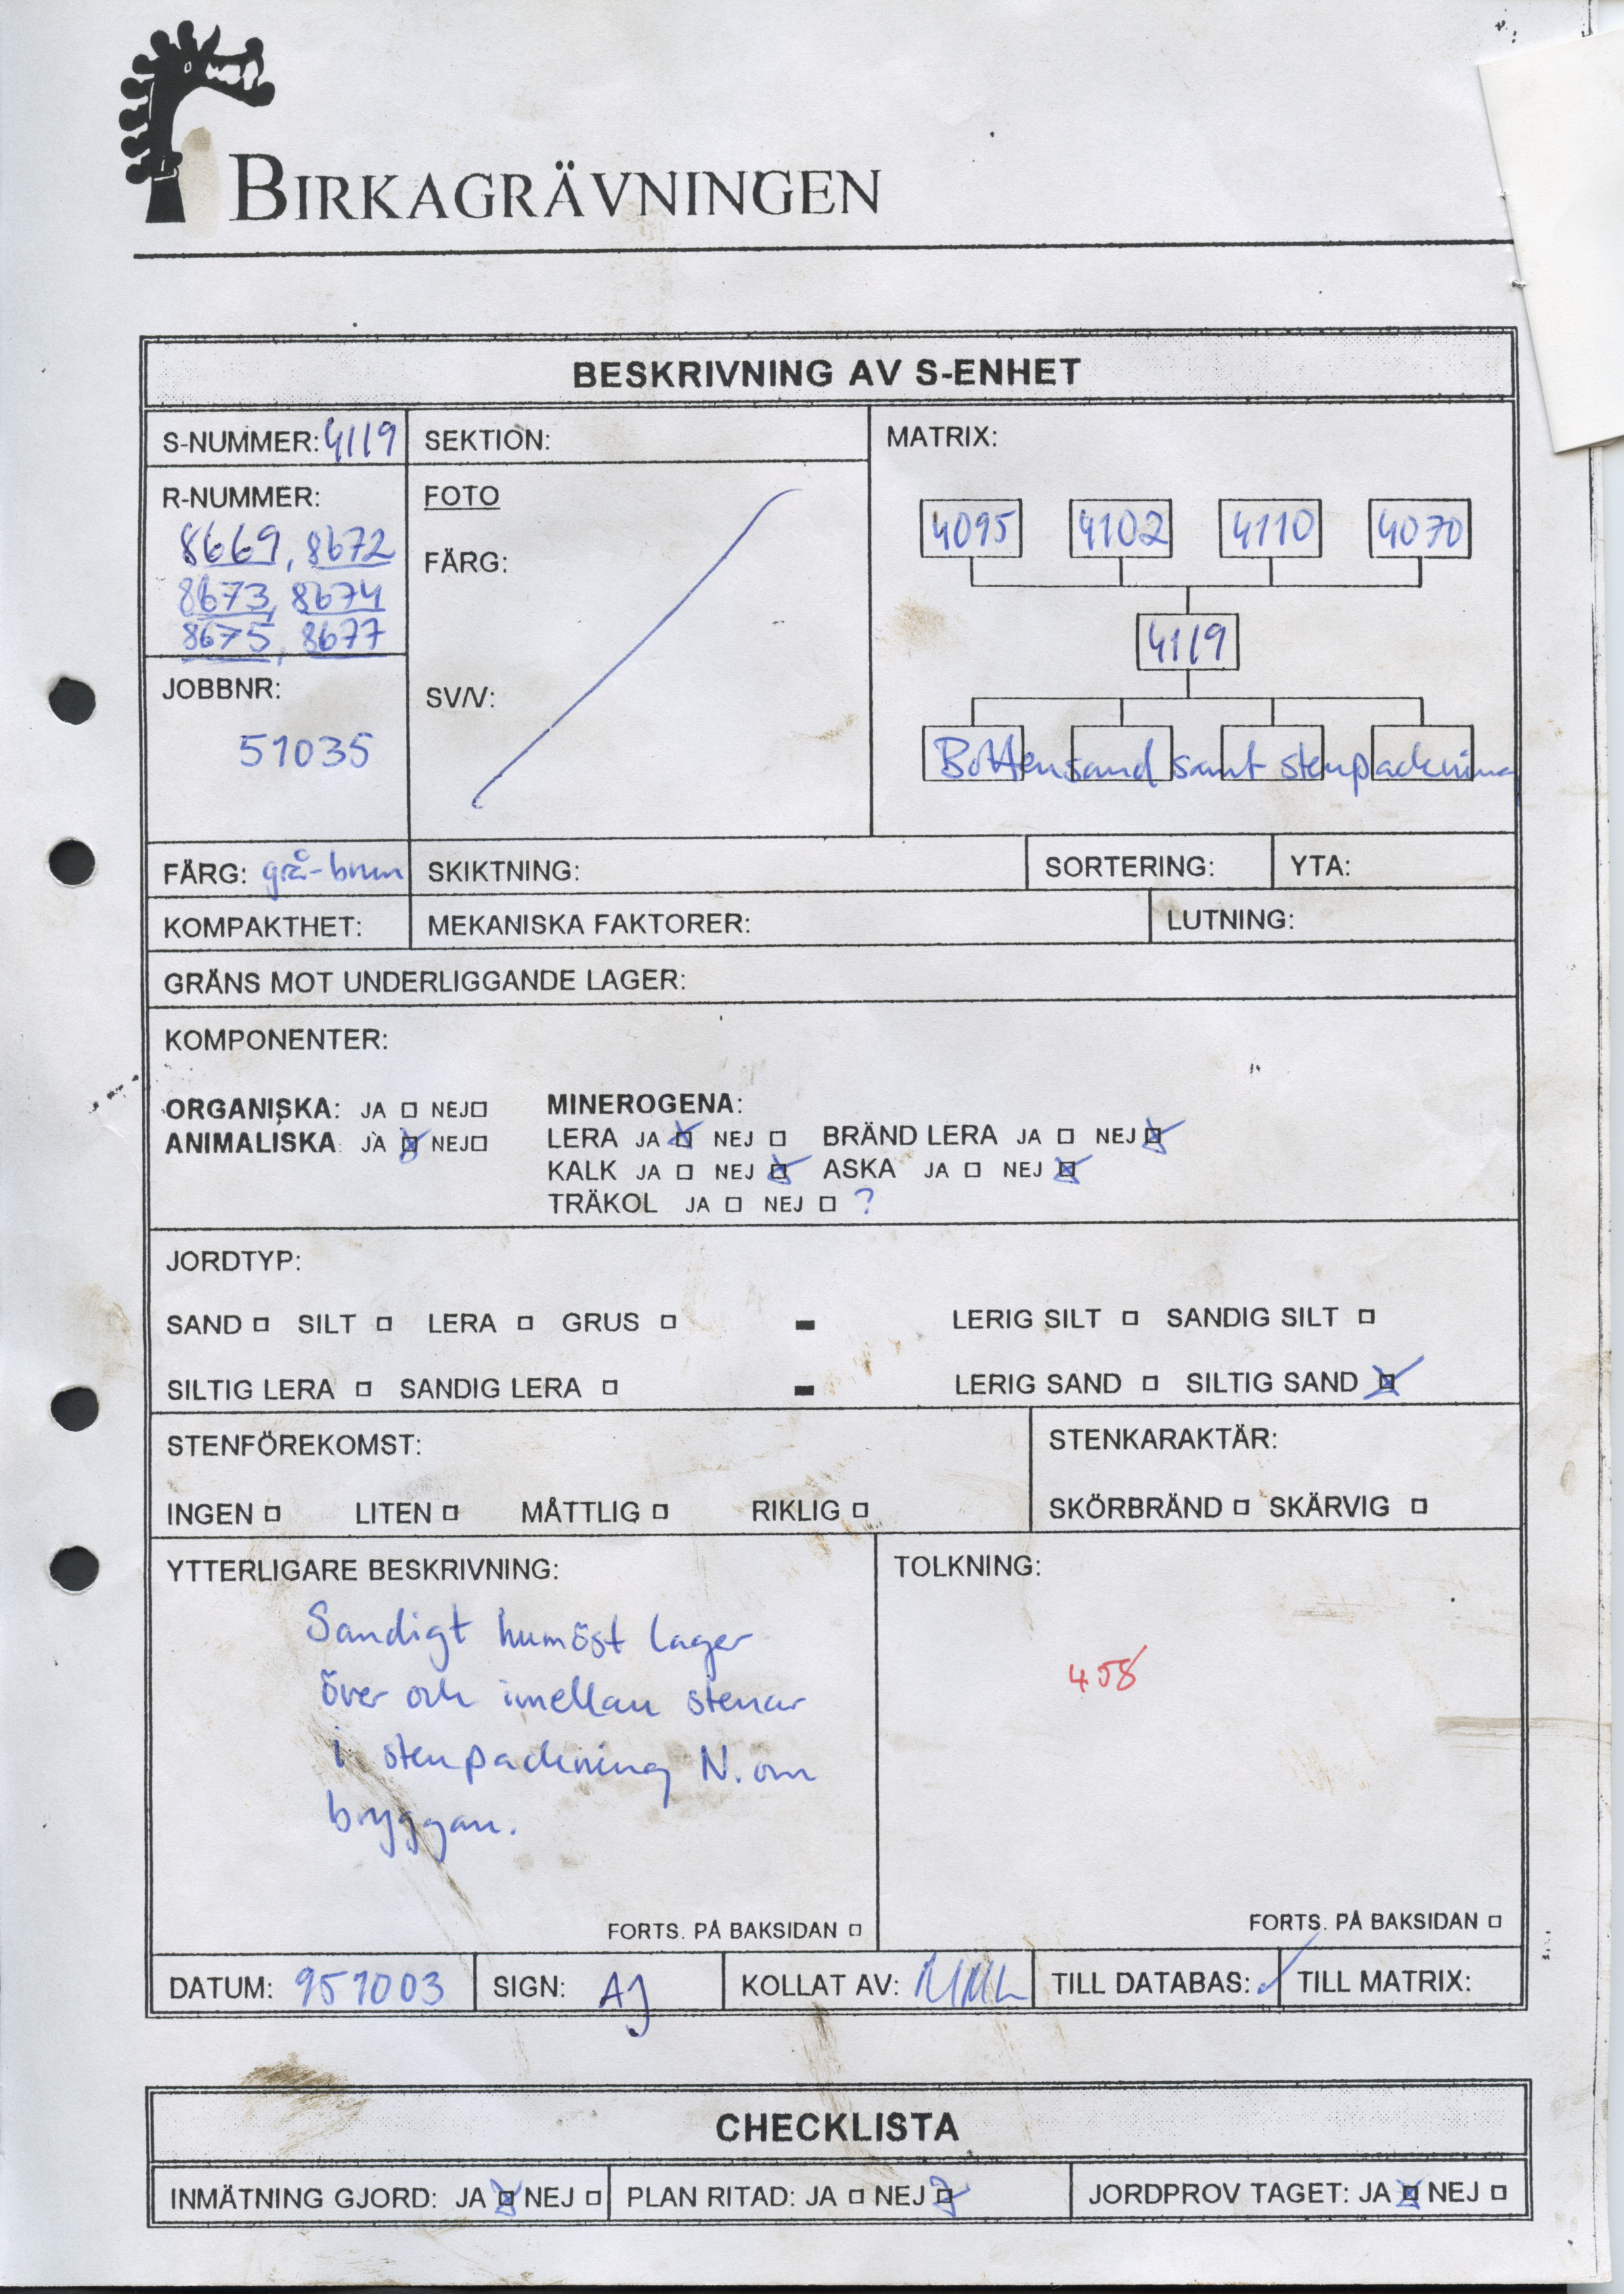 BIRKAGRÄVNINGEN
BESKRIVNING AV S-ENHET
S-NUMMER: 4119
SEKTION:
MATRIX:
R-NUMMER:
8669, 8672
8673, 8674
8675, 8677
FOTO
FÄRG:
SV/V:
4095 4102 4110 4070
4119
Bottensand samt stenpackning
JOBBNR:
51035
FÄRG: grå-brun
SKIKTNING:
SORTERING:
YTA:
KOMPAKTHET:
MEKANISKA FAKTORER:
LUTNING:
GRÄNS MOT UNDERLIGGANDE LAGER:
KOMPONENTER:
ORGANISKA: JA NEJ
ANIMALISKA JA NEJ
MINEROGENA:
LERA JA NEJ BRÄND LERA JA NEJ
KALK JA NEJ ASKA JA NEJ
TRÄKOL JA NEJ ?
JORDTYP:
SAND SILT LERA GRUS - LERIG SILT SANDIG SILT
SILTIG LERA SANDIG LERA - LERIG SAND SILTIG SAND
STENFÖREKOMST:
INGEN LITEN MÅTTLIG RIKLIG
STENKARAKTÄR:
SKÖRBRÄND SKÄRVIG
YTTERLIGARE BESKRIVNING:
Sandigt humöst lager
över och imellan stenar
i stenpackning N. om
bryggan.
FORTS. PÅ BAKSIDAN
TOLKNING:
458
FORTS. PÅ BAKSIDAN
DATUM: 951003
SIGN: AJ
KOLLAT AV:
TILL DATABAS:
TILL MATRIX:
CHECKLISTA
INMÄTNING GJORD: JA NEJ
PLAN RITAD: JA NEJ
JORDPROV TAGET: JA NEJ